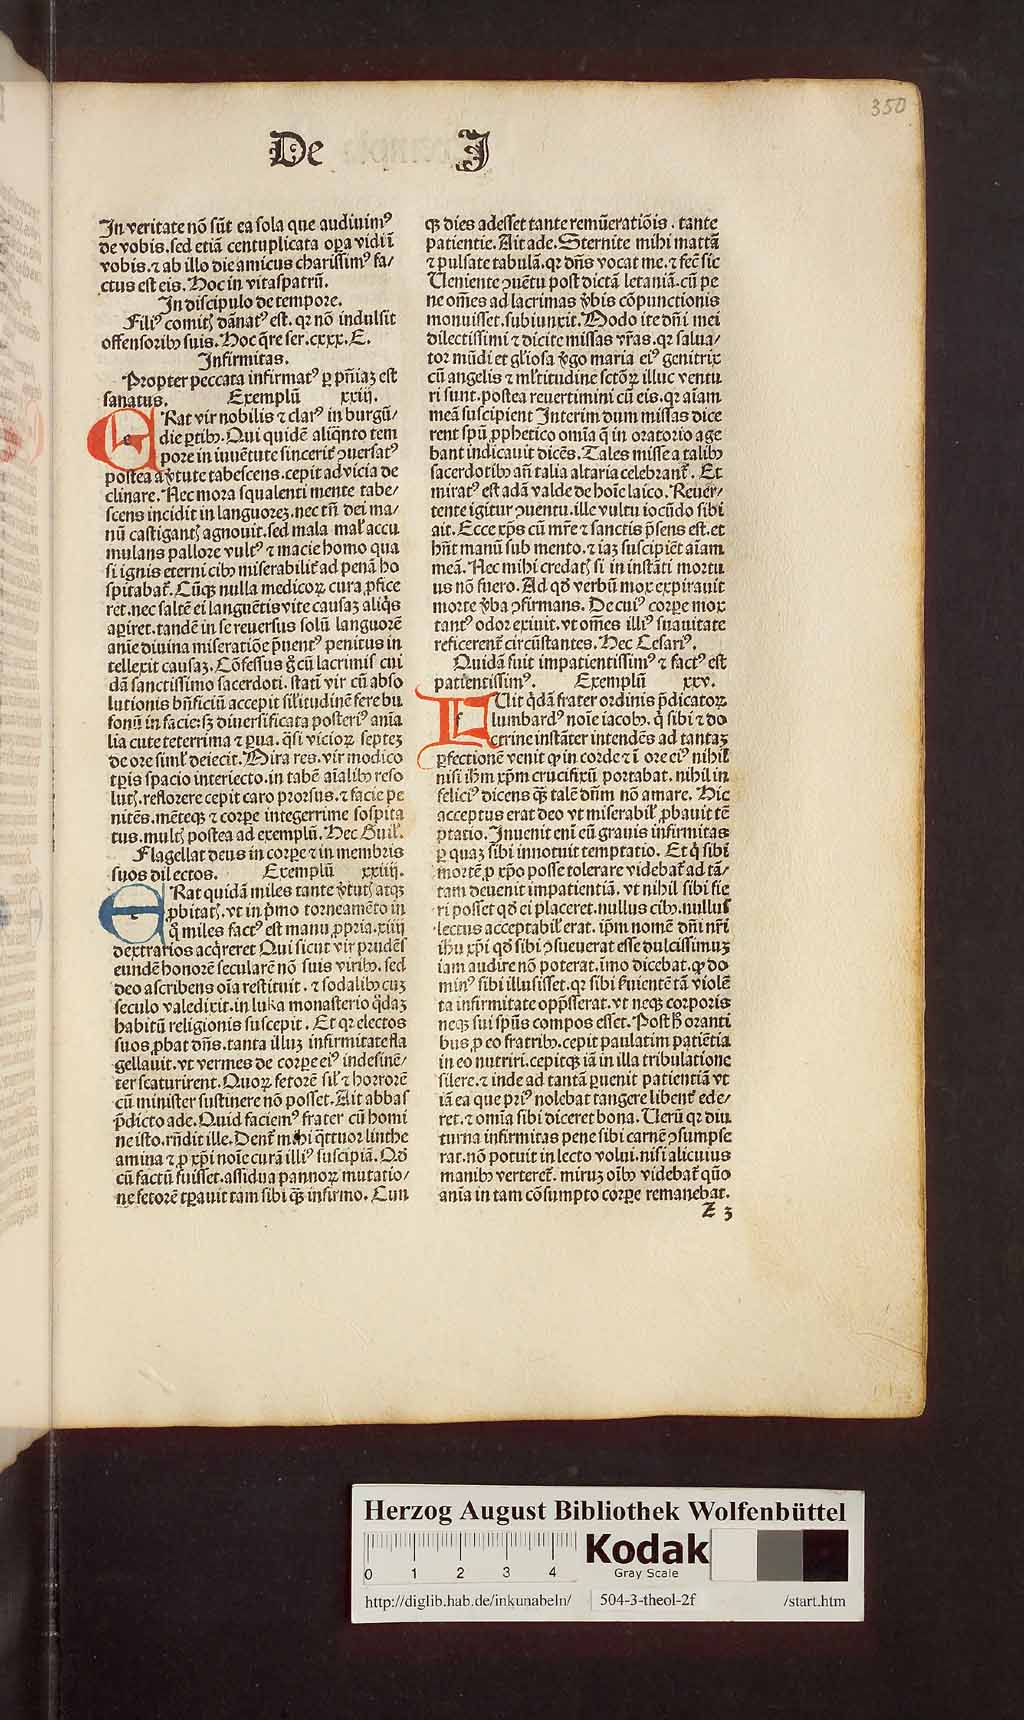 350
De J
In veritate nō sūt ea sola que audiuimꝰ
de vobis. sed etiā centuplicata opa vidi ī
vobis. ⁊ ab illo die amicus charissimꝰ fa/
ctus est eis. Hoc in vitaspatrū.
In discipulo de tempore.
Filiꝰ comitꝭ dānatꝰ est. qꝛ nō indulsit
offensoribꝰ suis. Hoc q̄re ser. cxxx. E.
Infirmitas.
Propter peccata infirmatꝰ ꝑ pn̄iaꝫ est
sanatus. Exemplū xxiij.
ERat vir nobilis ⁊ clarꝰ in burgū/
die ꝑtibꝰ. Qui quidē aliqn̄to tem
pore in iuuētute sincerit̄ ꝯuersatꝰ
postea a v̄tute tabescens. cepit ad vicia de
clinare. Nec mora squalenti mente tabe/
scens incidit in languoreꝫ. nec tn̄ dei ma/
nū castigantꝭ agnouit. sed mala mal' accu
mulans pallore vultꝰ ⁊ macie homo qua
si ignis eterni cibꝰ miserabilit̄ ad penā ho
spitabat̄. Cūqꝫ nulla medicoꝝ cura ꝓfice
ret. nec saltē ei languētis vite causaꝫ aliq̄s
aꝑiret. tandē in se reuersus solū languorē
anīe diuina miseratiōe p̄uentꝰ penitus in
tellexit causaꝫ. Cōfessus g̊ cū lacrimis cui
dā sanctissimo sacerdoti. statī vir cū abso
lutionis bn̄ficiū accepit sil'itudinē fere bu
fonū in facie sꝫ diuersificata posteriꝰ anīa
lia cute teterrima ⁊ ꝑua. q̄si vicioꝝ septeꝫ
de ore siml' deiecit. Mira res. vir modico
tꝑis spacio interiecto. in tabē aīalibꝰ reso
lutꝭ. reflorere cepit caro prorsus. ⁊ facie pe
nitēs. mēteqꝫ ⁊ corꝑe integerrime sospita
tus. multꝭ postea ad exemplū. Hec Guil'.
Flagellat deus in corꝑe ⁊ in membris
suos dilectos. Exemplū xxiiij.
ERat quidā miles tante v̄tutꝭ atqꝫ
ꝓbitatꝭ. vt in p̄mo torneamēto in
q̊ miles factꝰ est manu ꝓpria. xiiij
dextrarios acq̄reret Qui sicut vir prudēs
eundē honorē secularē nō suis viribꝰ. sed
deo ascribens oīa restituit. ⁊ sodalibꝰ cuꝫ
seculo valedixit. in luka monasterio q̄daꝫ
habitū religionis suscepit. Et qꝛ electos
suos ꝓbat dn̄s. tanta illuꝫ infirmitate fla
gellauit. vt vermes de corꝑe eiꝰ indesinē/
ter scaturirent. Quoꝝ fetorē sil' ⁊ horrorē
cū minister sustinere nō posset. Ait abbas
p̄dicto ade. Quid faciemꝰ frater cū homi
ne isto. rn̄dit ille. Dent̄ mihi q̄ttuor linthe
amina ⁊ ꝓ xp̄i noīe curā illiꝰ suscipiā. Qd̄
cū factū fuisset. assidua pannoꝝ mutatio/
ne fetorē tꝑauit tam sibi q̄ꝫ infirmo. Cun
qꝫ dies adesset tante remūeratiōis. tante
patientie. Ait ade. Sternite mihi mattā
⁊ pulsate tabulā. qꝛ dn̄s vocat me. ⁊ fec̄ sic
Ueniente ꝯuētu post dictā letaniā. cū pe
ne om̄es ad lacrimas v̄bis cōpunctionis
monuisset. subiunxit. Modo ite dn̄i mei
dilectissimi ⁊ dicite missas vr̄as. qꝛ salua/
tor mūdi et gl'iosa v̄go maria eiꝰ genitrix
cū angelis ⁊ ml'titudine sctōꝝ illuc ventu
ri sunt. postea reuertimini cū eis. qꝛ aīam
meā suscipient Interim dum missas dice
rent spū ꝓphetico omīa q̄ in oratorio age
bant indicauit dicēs. Tales misse a talibꝰ
sacerdotibꝰ añ talia altaria celebrant̄. Et
miratꝰ est adā valde de hoīe laico. Reuer/
tente igitur ꝯuentu. ille vultu iocūdo sibi
ait. Ecce xp̄s cū mr̄e ⁊ sanctis p̄sens est. et
hn̄t manū sub mento. ⁊ iaꝫ suscipiēt aīam
meā. Nec mihi credatꝭ si in instāti mortu
us nō fuero. Ad qd̄ verbū mox expirauit
morte v̄ba ꝯfirmans. De cuiꝰ corꝑe mox
tantꝰ odor exiuit. vt om̄es illiꝰ suauitate
reficerent̄ circūstantes. Hec Cesariꝰ.
Quidā fuit impatientissimꝰ ⁊ factꝰ est
patientissimꝰ. Exemplū xxv.
FUit q̄dā frater ordinis p̄dicatoꝝ
lumbardꝰ noīe iacobꝰ. q̄ sibi ⁊ do
ctrine instāter intendēs ad tantaꝫ
ꝑfectionē venit ꝙ in corde ⁊ ī ore eiꝰ nihil
nisi ih̄m xp̄m crucifixū portabat. nihil in
feliciꝰ dicens q̄ꝫ talē dn̄m nō amare. Hic
acceptus erat deo vt miserabil' ꝓbauit tē
ptatio. Inuenit enī eū grauis infirmitas
ꝑ quaꝫ sibi innotuit temptatio. Et q̄ sibi
mortē ꝓ xp̄o posse tolerare videbat̄ ad tā/
tam deuenit impatientiā. vt nihil sibi fie
ri posset qd̄ ei placeret. nullus cibꝰ. nullus
lectus acceptabil' erat. ip̄m nomē dn̄i nr̄i
ih̄u xp̄i qd̄ sibi ꝯsueuerat esse dulcissimuꝫ
iam audire nō poterat. īmo dicebat. ꝙ do
minꝰ sibi illusisset. qꝛ sibi ẜuientē tā violē
ta infirmitate opp̄sserat. vt neqꝫ corporis
neqꝫ sui spūs compos esset. Post h̄ oranti
bus ꝓ eo fratribꝰ. cepit paulatim patiētia
in eo nutriri. cepitqꝫ iā in illa tribulatione
silere. ⁊ inde ad tantā ꝑuenit patientiā vt
iā ea que priꝰ nolebat tangere libent̄ ede/
ret. ⁊ omīa sibi diceret bona. Uerū qꝛ diu
turna infirmitas pene sibi carnē ꝯsumpse
rat. nō potuit in lecto volui. nisi alicuius
manibꝰ verteret̄. miruꝫ oībꝰ videbat̄ quō
anīa in tam cōsumpto corꝑe remanebat.
Z 3
Herzog August Bibliothek Wolfenbüttel
0 1 2 3 4
Kodak
Gray Scale
http://diglib.hab.de/inkunabeln/ 504-3-theol-2f /start.htm